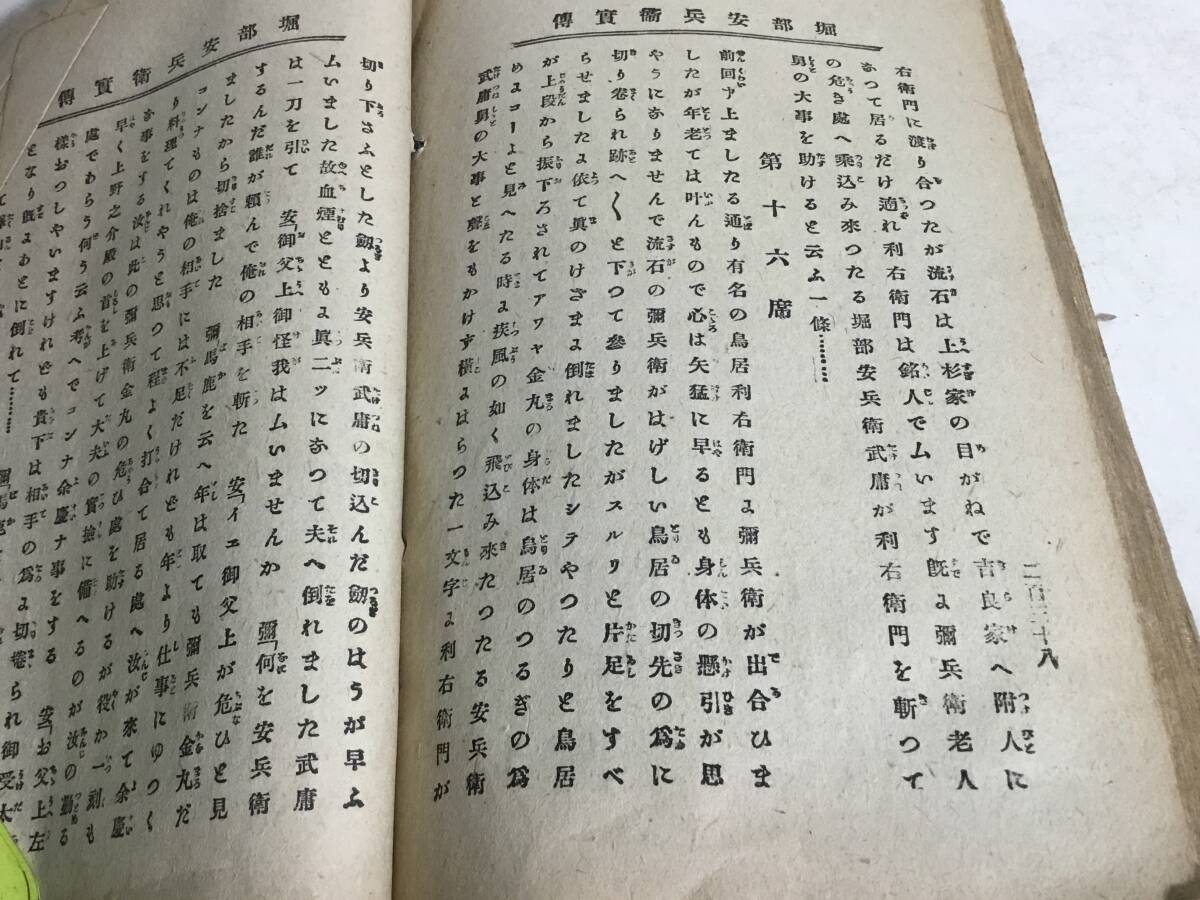 堀部安兵衛實傳
二百三十八
右衛門に渡り合つたが流石は上杉家の目がねで吉良家へ附人に
なつて居るだけ適れ利右衛門は銘人でムいます既に彌兵衛老人
の危き處へ乘込み來つたる堀部安兵衛武庸が利右衛門を斬つて
舅の大事を助けると云ふ一條………
第十六席
前回申上ましたる通り有名の鳥居利右衛門に彌兵衛が出合ひま
したが年老ては叶んもので心は矢猛に早るとも身体の懸引が思
やうになりません で流石の彌兵衛がはげしい鳥居の切先の爲に
切り卷られ跡へ〱と下つて參りましたがスルリと片足をすべ
らせましたよ依て眞のけさまに倒れましたシテやつたりと鳥居
が上段から振下ろされてアワヤ金丸の身体は鳥居のつるぎの爲
めにコーよと見へたる時に疾風の如く飛込み來たつたる安兵衛
武庸舅の大事と聲をもかけず横にはらつた一文字に利右衛門が
堀部安兵衛實傳
切り下さふとした劔より安兵衛武庸の切込んだ劔のはうが早ふ
ムいました故血煙とともに眞二ッになつて夫へ倒れました武庸
は一刀を引て 安「御父上御怪我はムいませんか 彌「何を安兵衛
するんだ誰が頼んで俺の相手を斬た 安「イエ御父上が危ひと見
ましたから切捨ました 彌「馬鹿を云へ年は取ても彌兵衛金丸だ
コンナものは俺の相手には不足だけれども年より仕事にゆつく
り料理てくれやうと思つて程よく打合て居る處へ汝が來て余慶
な事をする汝は此の彌兵衛金丸の危ひ處を助けるが役か一刻も
早く上野之介殿の首を上げて大夫の實檢に備へるのが汝の勤る
處であらう何う云ふ考へでコンナ余慶ナ事をする 安「お父上左
樣おつしやいますけれども貴下は相手の爲に切卷られ御受太
となり既にあとに倒れて………